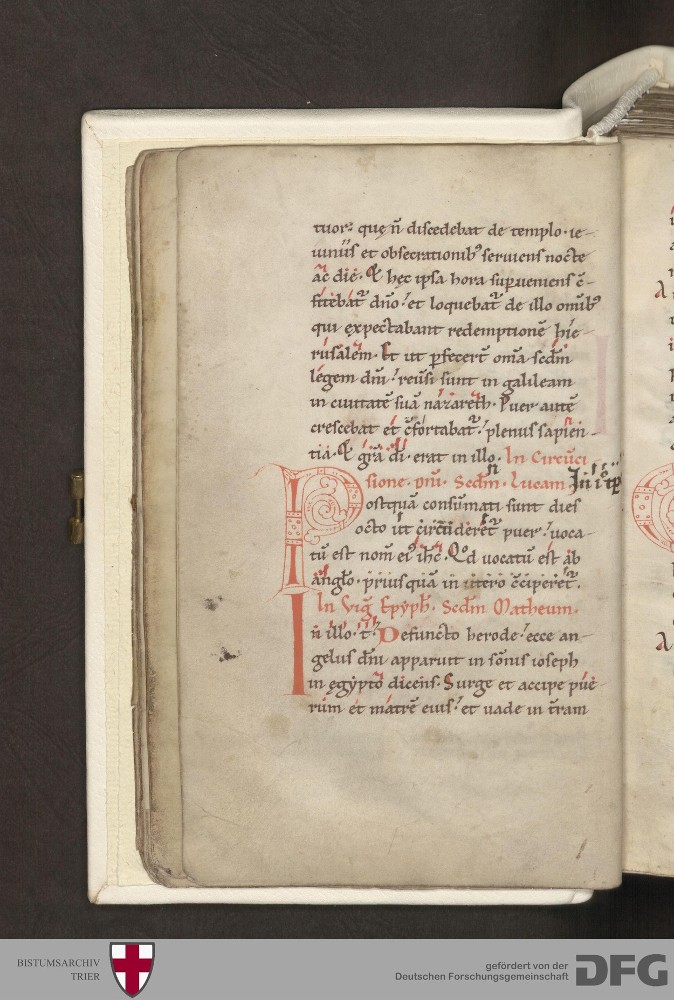 tuor: quę n̄ discedebat de templo· ie-
iuniis et obsecrationib; seruiens nocte
ac die. & hęc ipsa hora superueniens c̄-
fitebat᷑ dn̄o / et loquebat᷑ de illo omib;
qui expectabant redemptionē hie-
rusalem. Et ut perfecer̄t om̄ia scd̄m
legem dn̄i / reuersi sunt in galileam
in ciuitatē suā nazareth. Puer autē
crescebat et c̄fortabat᷑ / plenus sapien-
tia. & gr̄a dī erat in illo. In Circūci
sione. dn̄i. Scd̄m. Lucam
Postquā consūmati sunt dies
octo ut circūcideret᷑ puer / uoca-
tū est nom̄ ei; ih̄c. Qd̄ uocatū est ab
angl̄o. priusquā in utero c̄ciperet᷑.
In Viḡ Epyph̄. Scd̄m Matheum.
In illo. t̄. Defuncto herode / ecce an-
gelus dn̄i apparuit in sōnis ioseph
in ęgypto dicens. Surge et accipe pue-
rum et matrē eius / et uade in t̄ram
BISTUMSARCHIV
TRIER
gefördert von der
Deutschen Forschungsgemeinschaft
DFG